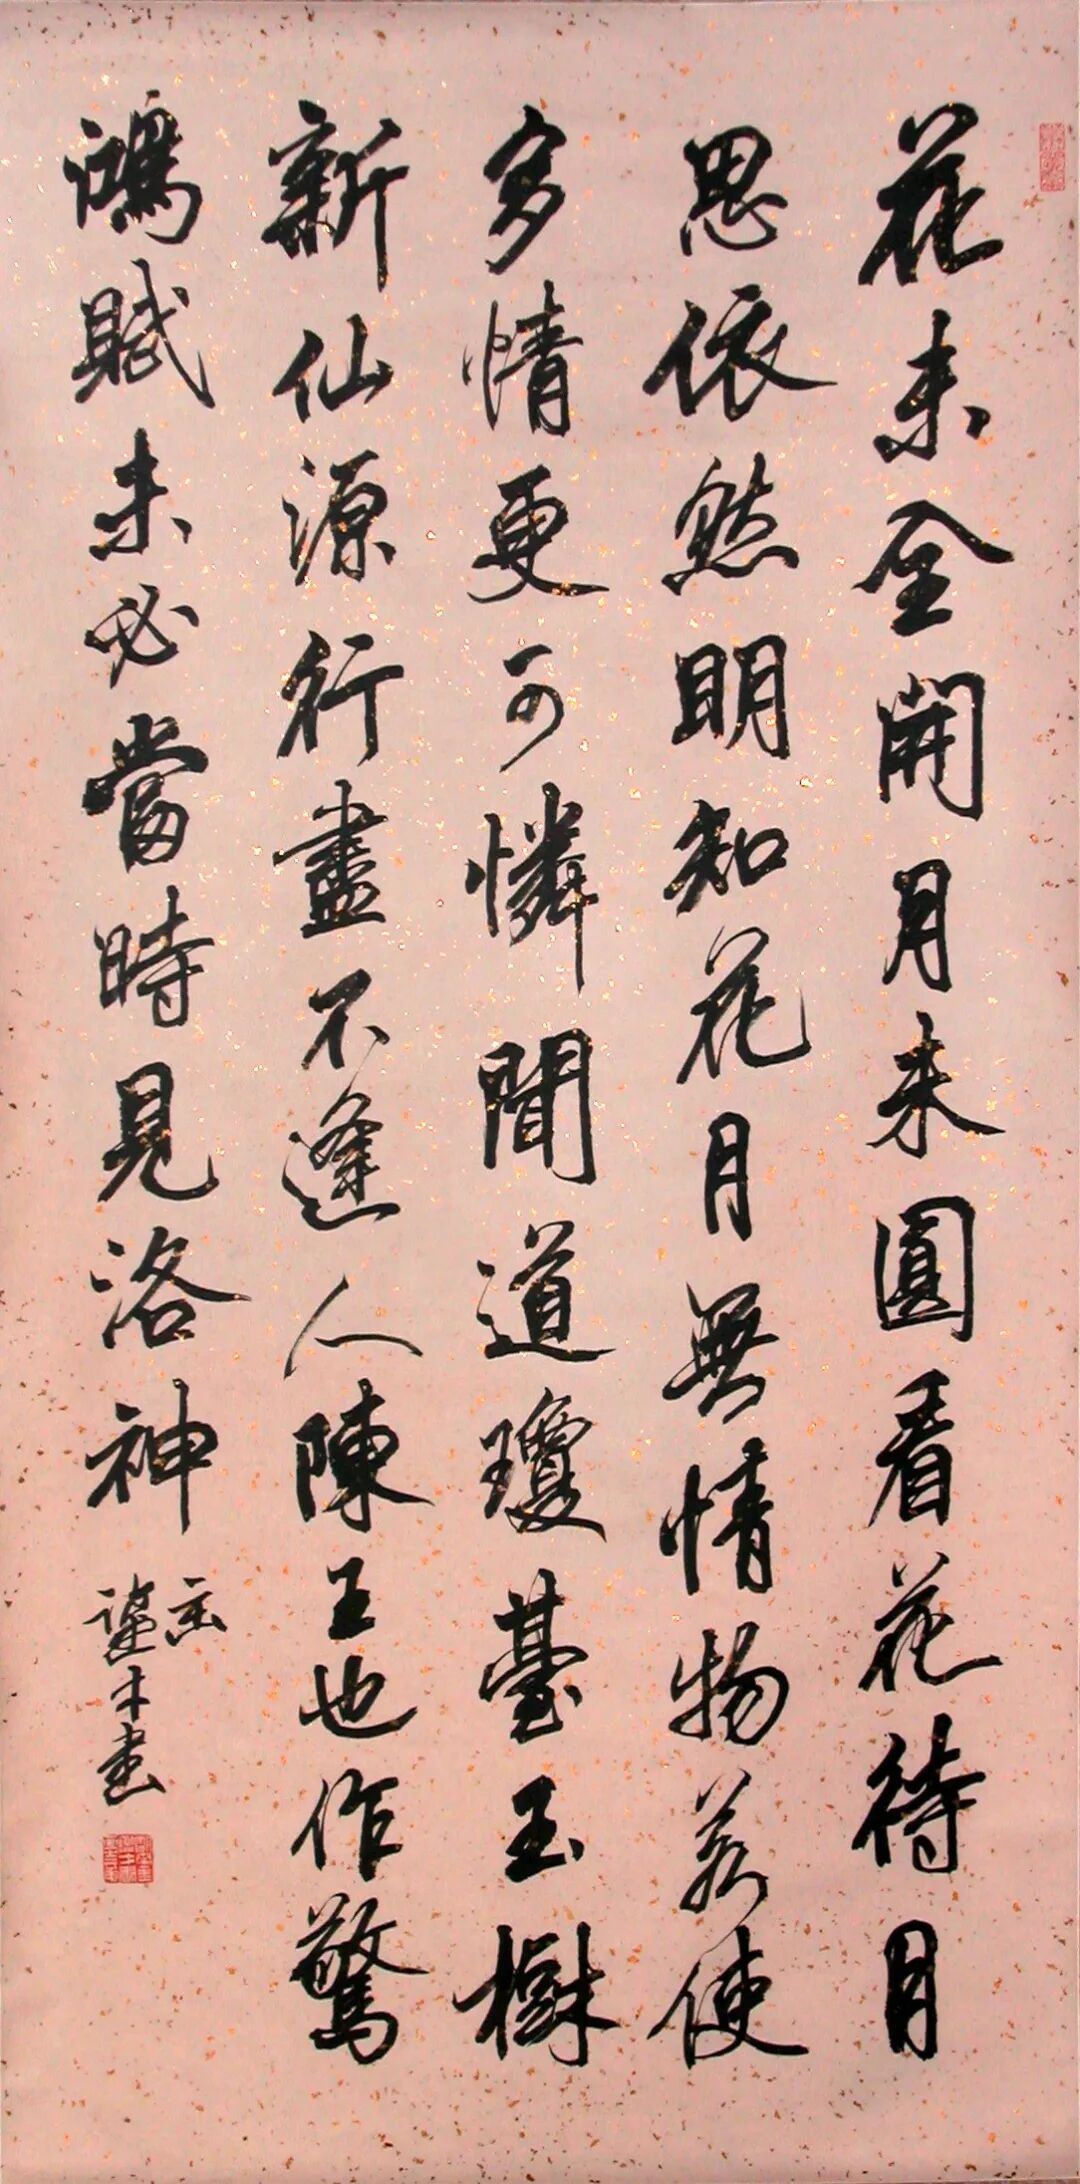 花未全開月未圓看花待月
思依然明知花月無情物若使
多情更可憐聞道瓊臺玉樹
新仙源行盡不逢人陳王也作驚
鴻賦未必當時見洛神
書